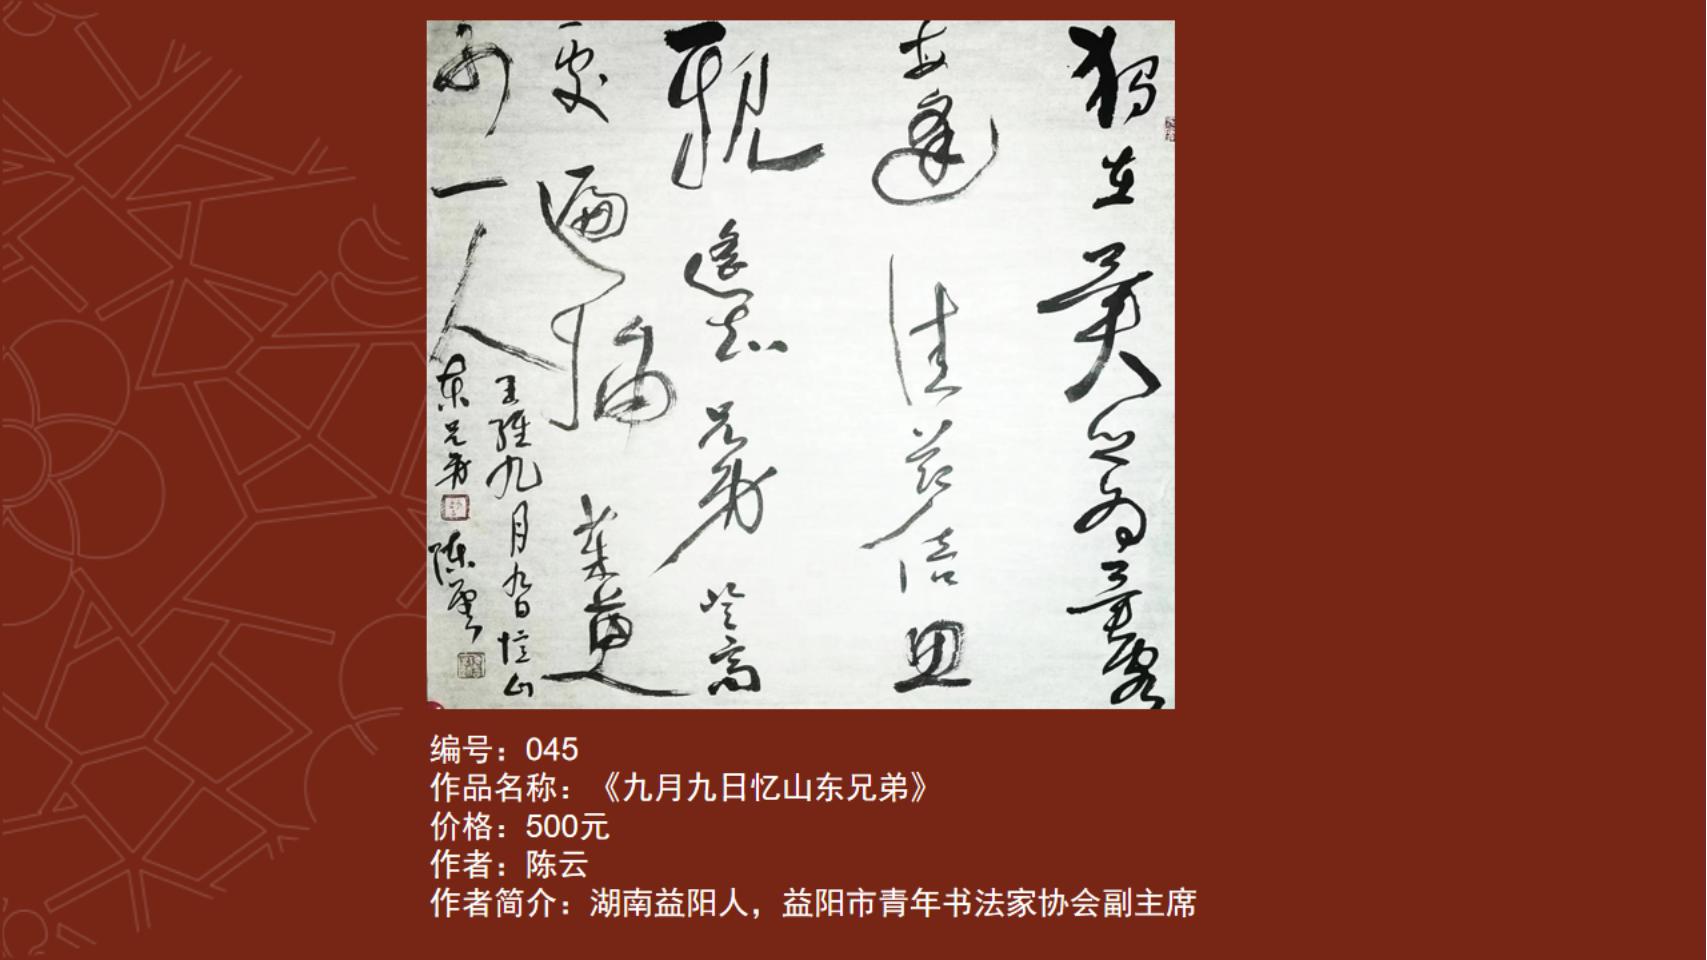 独在异乡为异客
每逢佳节倍思
亲遥知兄弟登高
处遍插茱萸
少一人
王维九月九日忆山
东兄弟
陈云
编号：045
作品名称：《九月九日忆山东兄弟》
价格：500元
作者：陈云
作者简介：湖南益阳人，益阳市青年书法家协会副主席